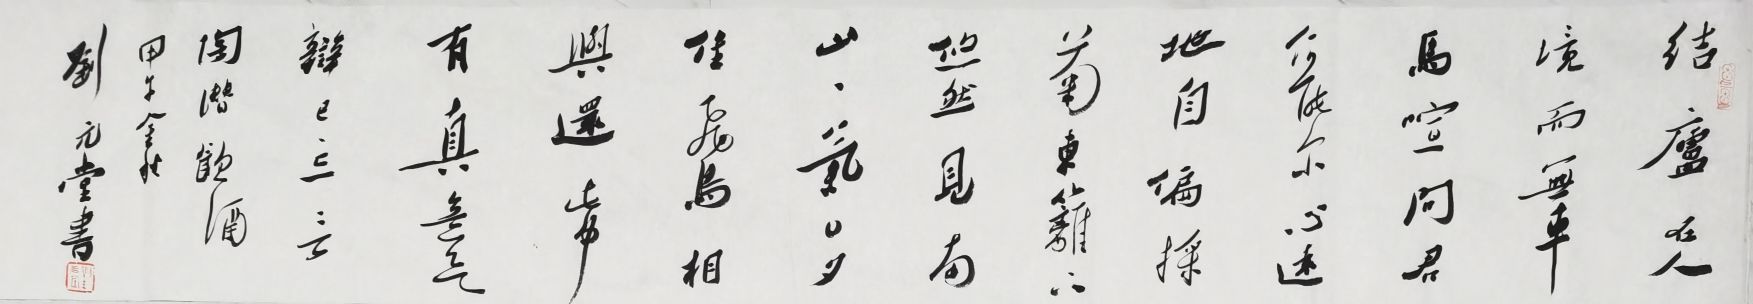 結廬在人
境而無車
馬喧問君
何能尔心遠
地自偏採
菊東籬下
悠然見南
山山氣日夕
佳飛鳥相
與還此中
有真意欲
辯已忘言
陶潛飲酒
甲午金秋
劉元堂書